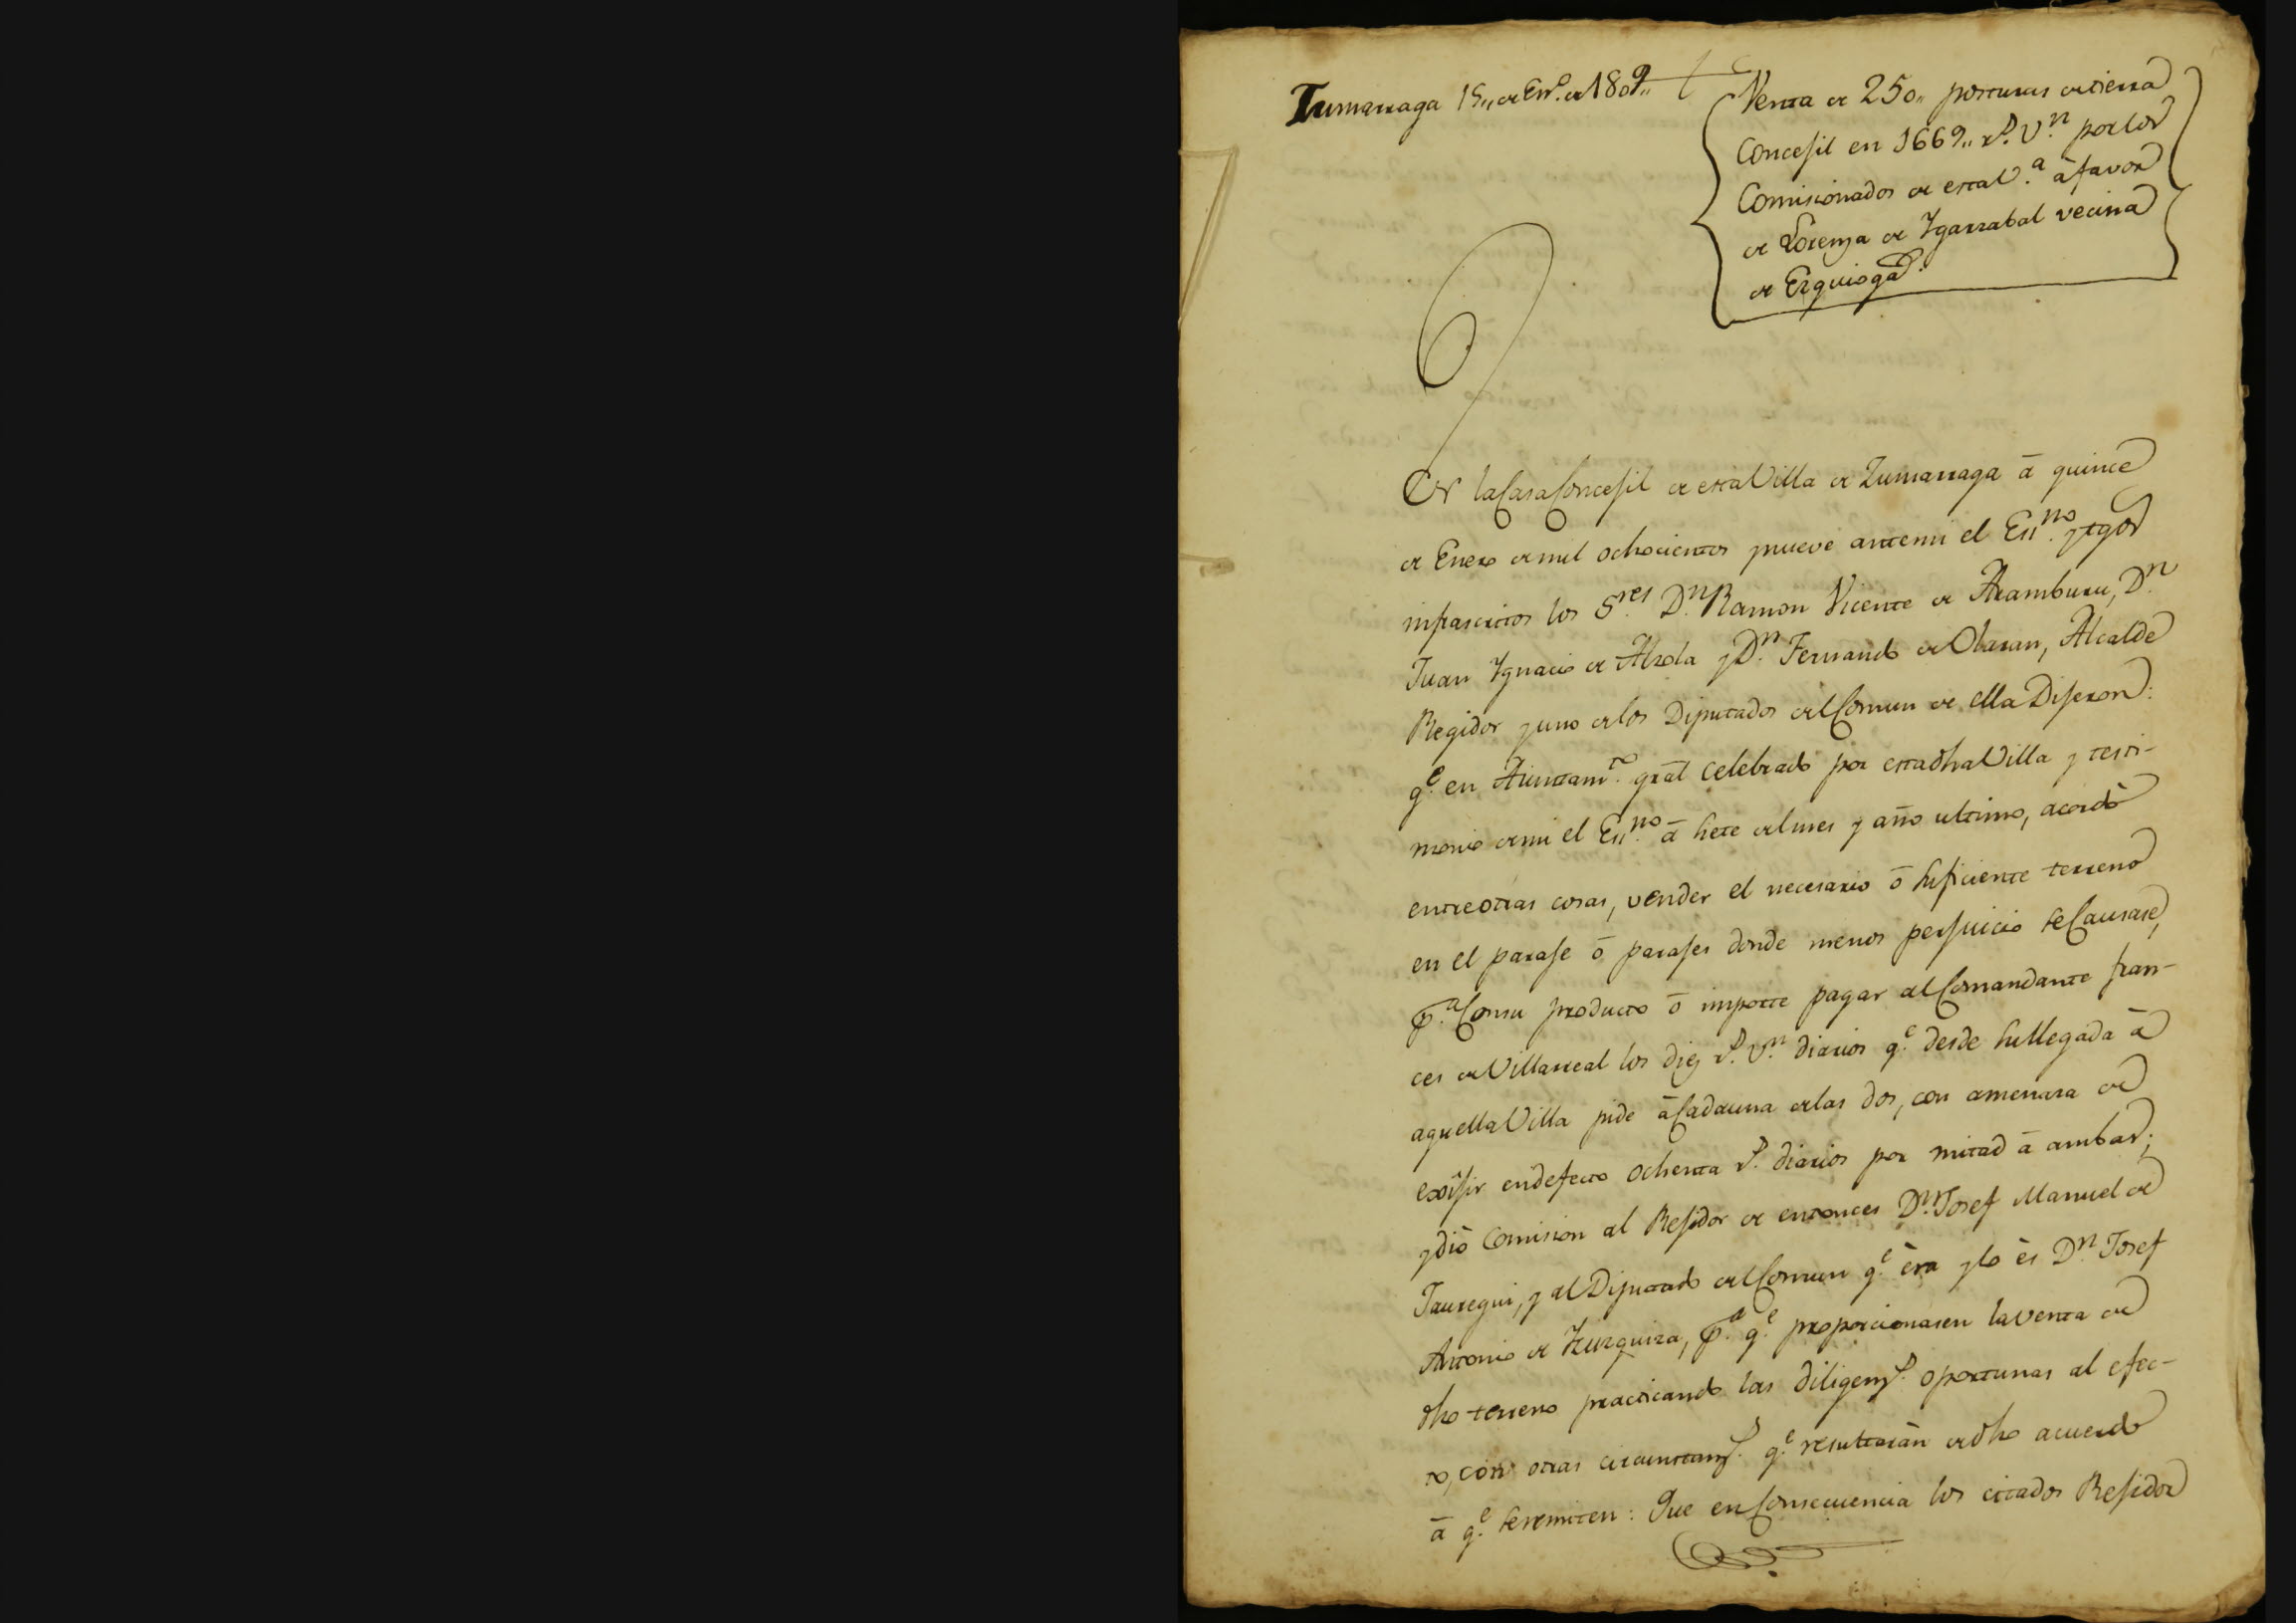 Zumarraga 15,, de En.º de 1809,,
Venta de 250,, posturas de tierra
Concejil en 1669,, r.s v.n por los
Comisionados de esta V.a à favor
de Lorenza de Ygarzabal vecina
de Ezquioga.
En la Casa Concejil de esta Villa de Zumarraga à quince
de Enero de mil ochocientos y nueve ante mi el Ess.no y tgos
infrascritos los S.res D.n Ramon Vicente de Aramburu, D.n
Juan Ygnacio de Alzola y D.n Fernando de Olaran, Alcalde
Regidor y uno de los Diputados del Comun de ella Dijeron:
q.e en Aiuntam.to gral celebrado por esta dha Villa y testi-
monio de mi el Ess.no à siete del mes y año ultimo, acordò
entre otras cosas, vender el necesario ò suficiente terreno
en el paraje ò parajes donde menos perjuicio se Causase,
p.a Con su producto ò importe pagar al Comandante fran-
ces de Villarreal los diez r.s v.n diarios q.e desde su llegada à
aquella Villa pide à Cada una de las dos, con amenaza de
exîjir en defecto ochenta r.s diarios por mitad à ambas;
y diò Comision al Rejidor de entonces D.n Josef Manuel de
Jauregui, y al Diputado del Comun q.e èra y lo ès D.n Josef
Antonio de Yzuzquiza, p.a q.e proporcionasen la venta de
dho terreno practicando las diligenz.s oportunas al efec-
to, con otras circunstanz.s q.e resultaràn de dho acuerdo
à q.e se remiten: Que en Consecuencia los citados Rejidor